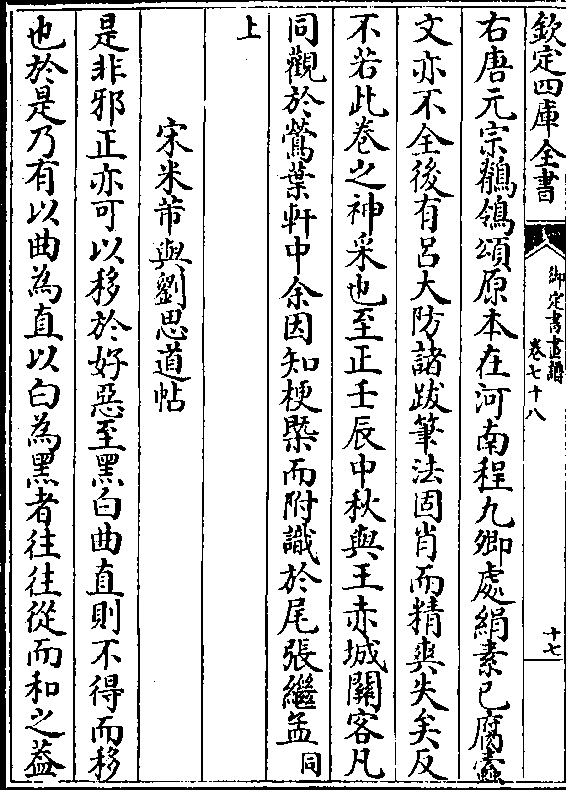 欽定四庫全書
御定書畫譜
卷七十八
十七
右唐元宗鶺鴒頌原本在河南程九卿處絹素已腐蠹
文亦不全後有呂大防諸跋筆法固肖而精爽失矣反
不若此卷之神采也至正壬辰中秋與王赤城關客凡
同觀於鶯葉軒中余因知梗槩而附識於尾張繼孟同
上
宋米芾與劉思道帖
是非邪正亦可以移於好惡至黑白曲直則不得而移
也於是乃有以曲為直以白為黑者往往從而和之葢